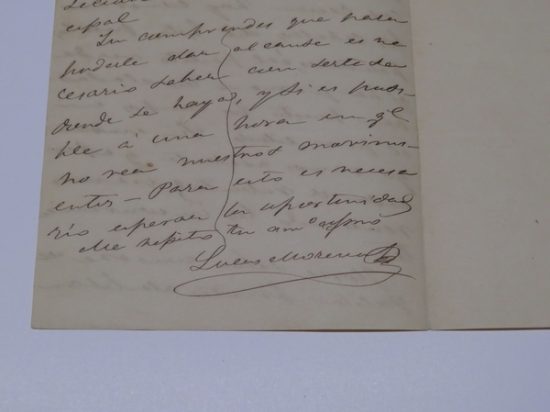 cipal
Tu comprendes que para
poderle dar alcance es ne
cesario saber con certeza
donde se haya, y si es posi
ble á una hora en qe
no vea nuestros movimi-
entos - Para esto es necesa
rio esperar la oportunidad
Me repito tu amo affmo
Lucas Moreno